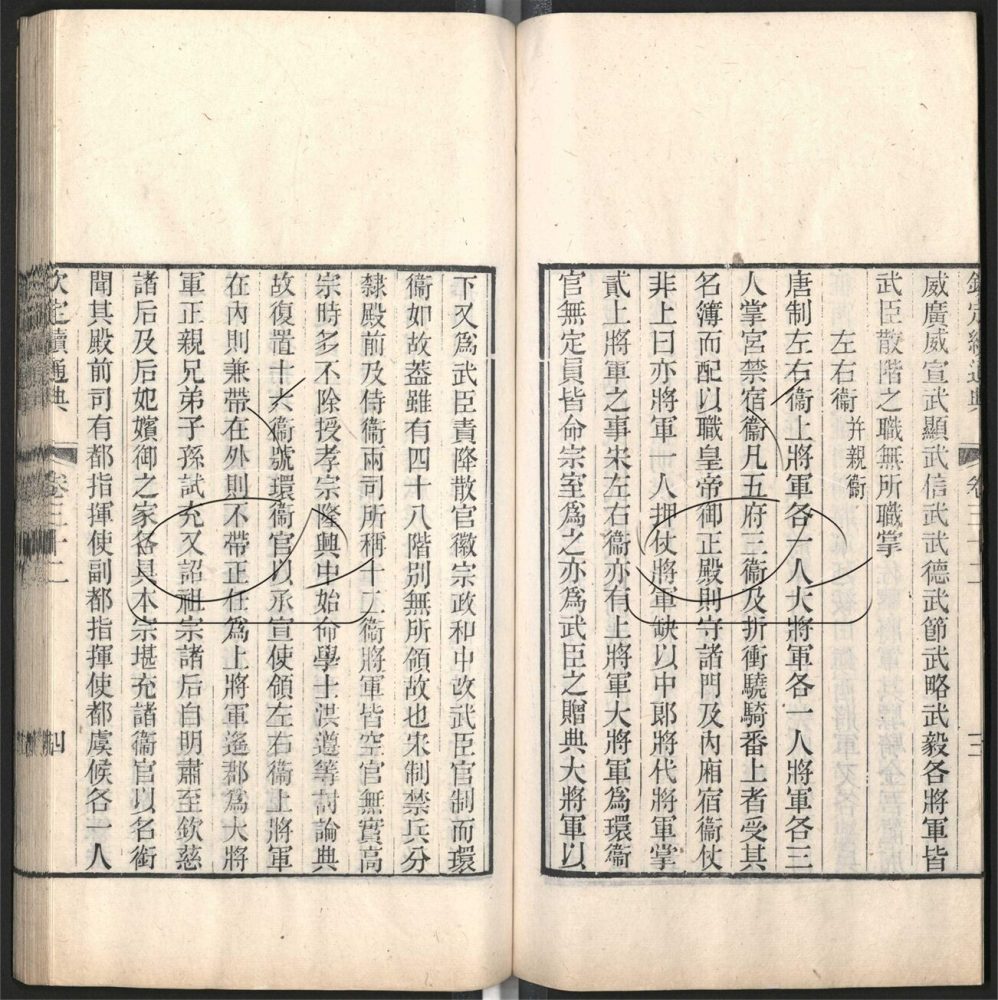 威廣威宣武顯武信武武德武節武略武毅各將軍皆
武臣散階之職無所職掌
左右衞 并親衞
唐制左右衞上將軍各一人大將軍各一人將軍各三
人掌宮禁宿衞凡五府三衞及折衝驍騎番上者受其
名簿而配以職皇帝御正殿則守諸門及內廂宿衞仗
非上日亦將軍一人押仗將軍缺以中郎將代將軍掌
貳上將軍之事宋左右衞亦有上將軍大將軍爲環衞
官無定員皆命宗室爲之亦爲武臣之贈典大將軍以
下又爲武臣責降散官徽宗政和中改武臣官制而環
衞如故葢雖有四十八階別無所領故也宋制禁兵分
隸殿前及侍衞兩司所稱十二衞將軍皆空官無實高
宗時多不除授孝宗隆興中始命學士洪遵等討論典
故復置十六衞號環衞官以承宣使領左右衞上將軍
在內則兼帶在外則不帶正任爲上將軍遙郡爲大將
軍正親兄弟子孫試充又詔祖宗諸后自明肅至欽慈
諸后及后妃嬪御之家各具本宗堪充諸衞官以名銜
聞其殿前司有都指揮使副都指揮使都虞候各一人
欽定續通典 卷三十二 四